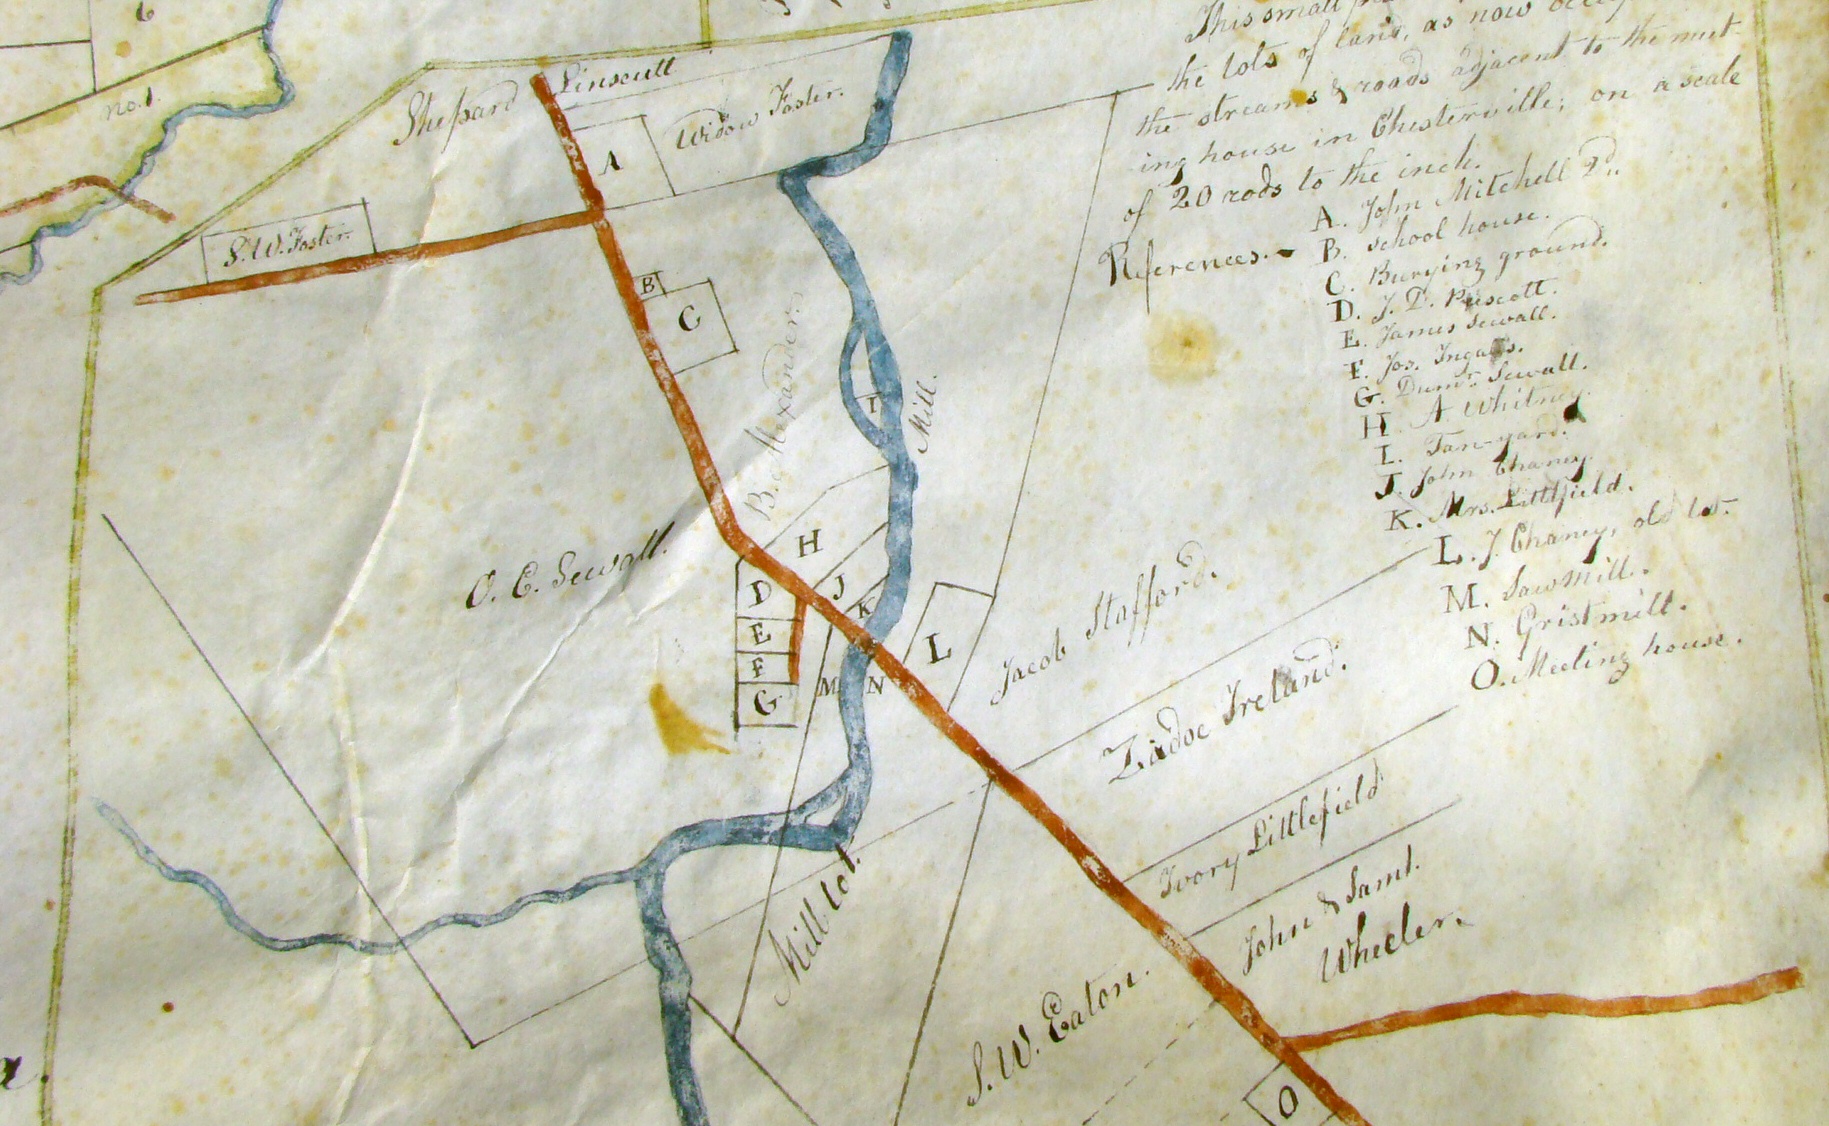 6
no. 1.
This small
the lots of land, as now
the streams & roads adjacent to the meet-
ing house in Chesterville; on a scale
of 20 rods to the inch.
References.-
A. John Mitchell 2d.
B. School house.
C. Burying ground.
D. J. L. Prescott.
E. James Sewall.
F. Jos. Ingalls.
G. Dumr. Sewall.
H. A. Whitney.
I. Tan-yard.
J. John Chaney.
K. Mrs. Littlefield.
L. J. Chaney, old lot.
M. Sawmill.
N. Gristmill.
O. Meeting house.
Shepard Linscutt
A
Widow Foster.
S. W. Foster.
B
C
B. Alexander.
I
Mill.
O. C. Sewall.
H
D
J
K
E
F
L
M
N
G
Jacob Stafford.
Zadoc Ireland.
Ivory Littlefield
Mill lot.
John & Saml.
Wheeler.
S. W. Eaton.
a.
O